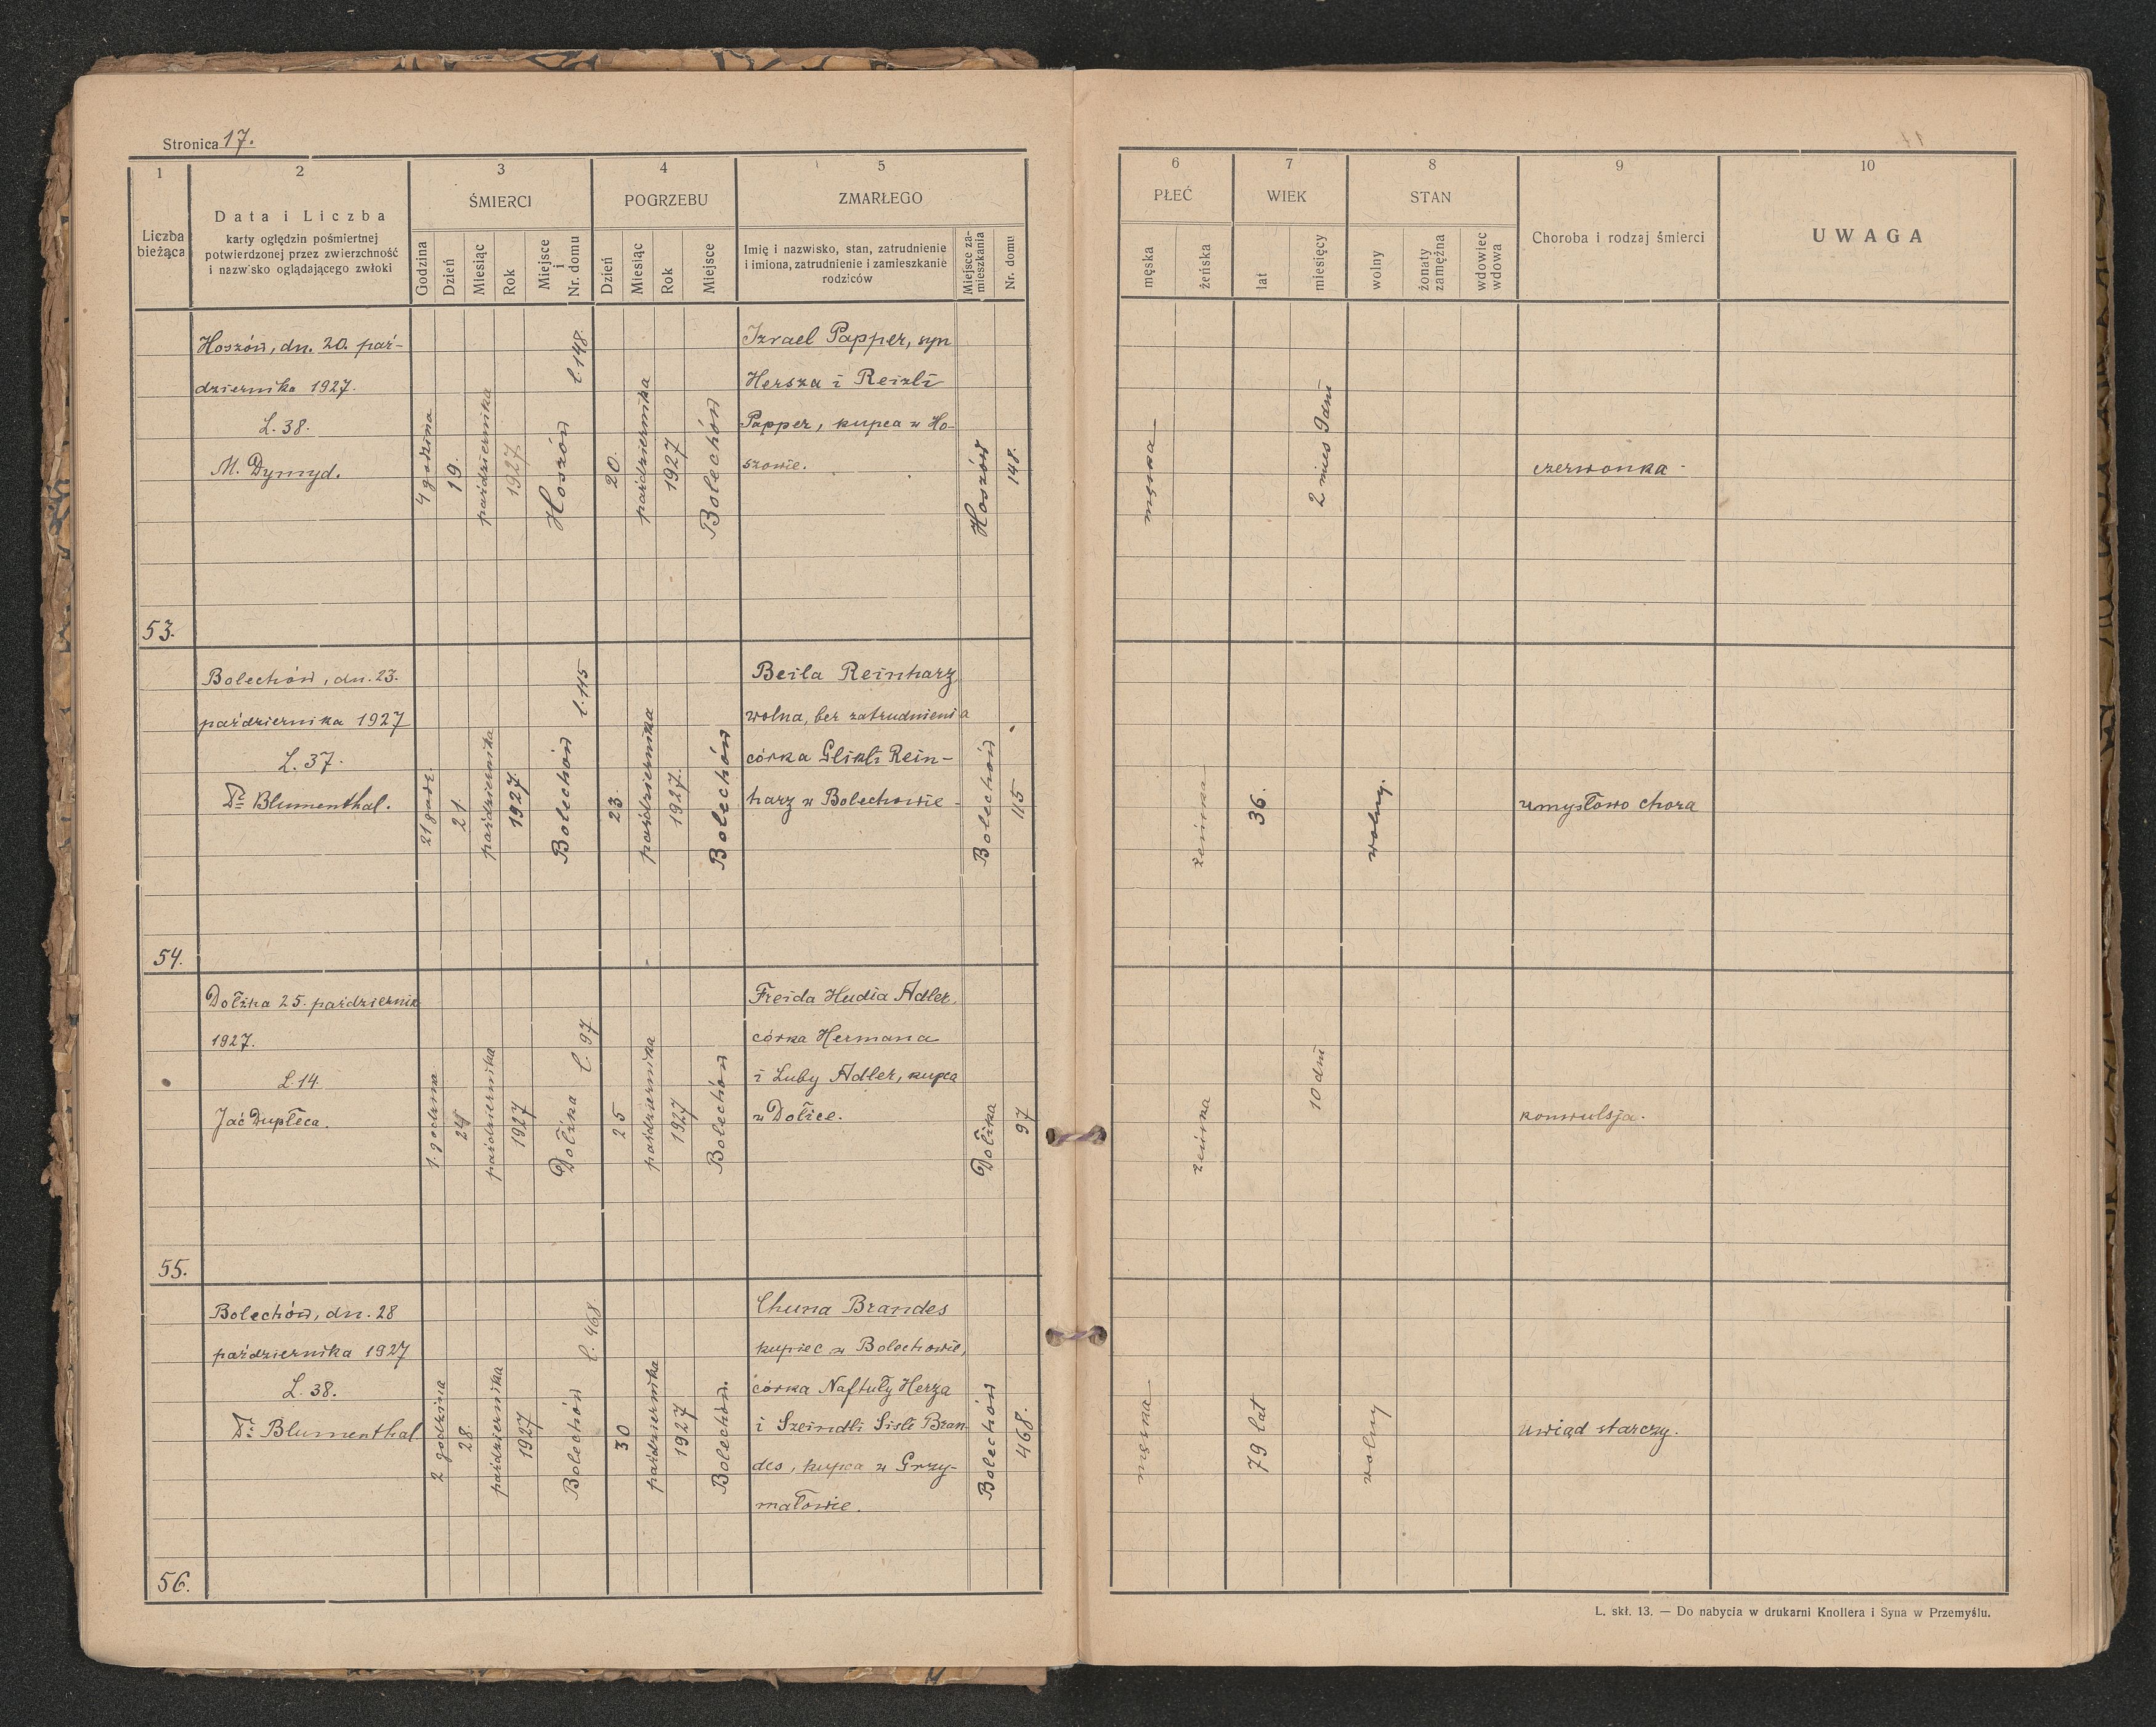 Stronica 17.
1
2
3
4
5
Liczba
bieżąca
Data i Liczba
karty oględzin pośmiertnej
potwierdzonej przez zwierzchność
i nazwisko oglądającego zwłoki
ŚMIERCI
Godzina
Dzień
Miesiąc
Rok
Miejsce
i
Nr. domu
POGRZEBU
Dzień
Miesiąc
Rok
Miejsce
ZMARŁEGO
Imię i nazwisko, stan, zatrudnienie
i imiona, zatrudnienie i zamieszkanie
rodziców
Miejsce za-
mieszkania
Nr. domu
6
7
8
9
10
PŁEĆ
męska
żeńska
WIEK
lat
miesięcy
STAN
wolny
żonaty
zamężna
wdowiec
wdowa
Choroba i rodzaj śmierci
UWAGA
53.
Hoszów, dn. 20. paź-
dziernika 1927.
L. 38.
M. Dymyd.
4 godzina
19.
października
1927
Hoszów l. 148.
20.
października
1927
Bolechów
Izrael Papper, syn
Hersza i Reizli
Papper, kupca w Ho-
szowie.
Hoszów
148.
męska
2 mies 9 dni
czerwonka
54.
Bolechów, dn. 23.
października 1927
L. 37.
Dr Blumenthal.
21 godz.
21
października
1927.
Bolechów l. 115
23.
października
1927.
Bolechów
Beila Reinharz
wolna, bez zatrudnienia
córka Glikli Rein-
harz w Bolechowie
Bolechów
115
żeńska
36.
wolny.
umysłowo chora
55.
Dolżka 25. październik
1927.
L. 14
1. godzina
24
października
1927
Dolżka l. 97
25
października
1927
Bolechów
Freida Hudia Adler
córka Hermana
i Luby Adler, kupca
Dolżka
97
żeńska
10 dni
konwulsja.
56.
Bolechów, dn. 28
października 1927
L. 38.
Dr Blumenthal
2 godzina
28.
października
1927
Bolechów l. 468.
30
października
1927
Bolechów.
Chuna Brandes
kupiec w Bolechowie,
córka Naftuły Herza
i Szeindli Sisli Bran
des, kupca w Grzy-
małowie.
Bolechów
468.
męska
79 lat
wolny
uwiąd starczy.
L. skł. 13. — Do nabycia w drukarni Knollera i Syna w Przemyślu.